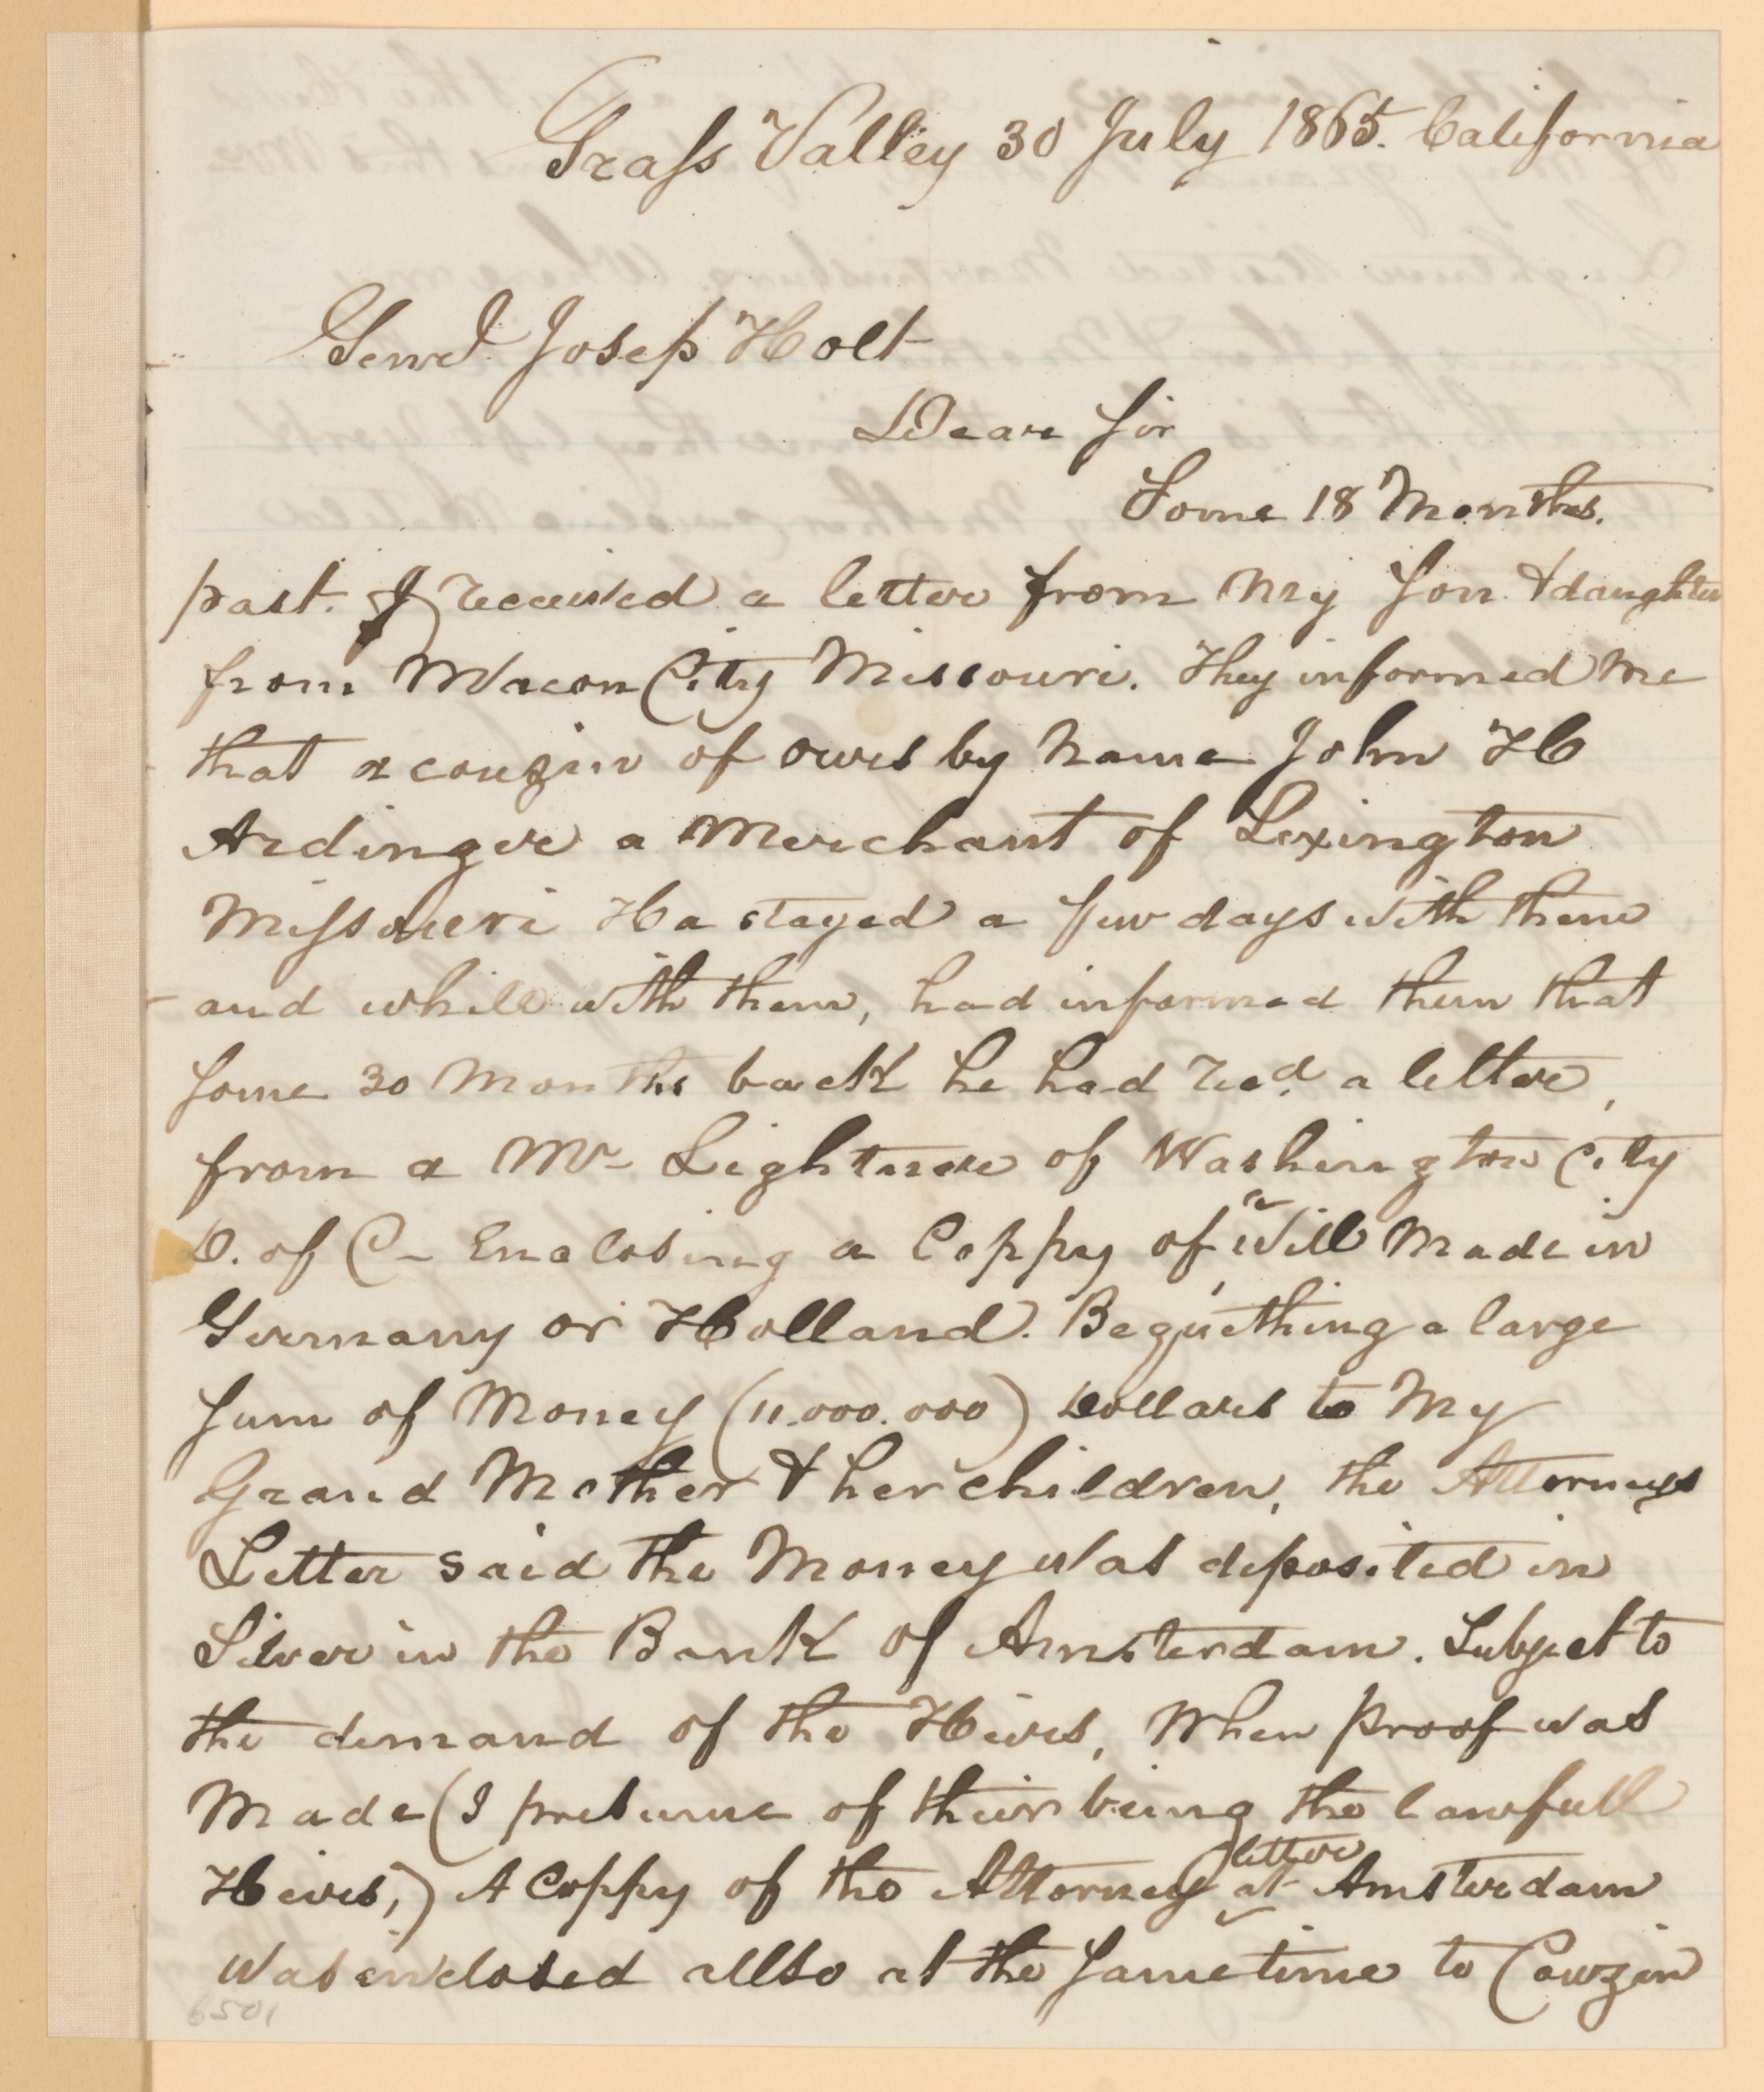 Grass Valley 30 July 1865. California
Genrl Josep Holt
Dear Sir
Some 18 Months.
past. I received a letter from my Son & daughter
from Macon City Missouri. They informed me
that a couzin of ours by name John H
Ardinger a Merchant of Lexington
Missouri Ha stayed a few days with them
and while with them, had informed them that
Some 30 Months back he had recd. a letter,
from a Mr Lightner of Washington City
D. of C- Enclosing a Coppy of a Will Made in
Germany or Holland. Bequething a large
Sum of Money (11.000.000) Dollars to My
Grand Mother & her children, the Attorneys
Letter said the Money was deposited in
Silver in the Bank of Amsterdam. Subject to
the demand of the Heirs, When proof was
Made (I presume of their being the lawfull
Heirs,) A Coppy of the Attorney letter at Amsterdam
was inclosed allso at the Same time to Couzin
6501